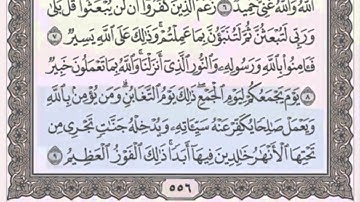 ٱللَّهُ وَٱللَّهُ غَنِيٌّ حَمِيدٌ ٦ زَعَمَ ٱلَّذِينَ كَفَرُوٓا۟ أَن لَّن يُبْعَثُوا۟ قُلْ بَلَىٰ
وَرَبِّي لَتُبْعَثُنَّ ثُمَّ لَتُنَبَّؤُنَّ بِمَا عَمِلْتُمْ وَذَٰلِكَ عَلَى ٱللَّهِ يَسِيرٌ ٧
فَـَٔامِنُوا۟ بِٱللَّهِ وَرَسُولِهِۦ وَٱلنُّورِ ٱلَّذِيٓ أَنزَلْنَا وَٱللَّهُ بِمَا تَعْمَلُونَ خَبِيرٌ
٨ يَوْمَ يَجْمَعُكُمْ لِيَوْمِ ٱلْجَمْعِ ذَٰلِكَ يَوْمُ ٱلتَّغَابُنِ وَمَن يُؤْمِنۢ بِٱللَّهِ
وَيَعْمَلْ صَٰلِحًا يُكَفِّرْ عَنْهُ سَيِّـَٔاتِهِۦ وَيُدْخِلْهُ جَنَّٰتٍ تَجْرِي مِن
تَحْتِهَا ٱلْأَنْهَٰرُ خَٰلِدِينَ فِيهَآ أَبَدًا ذَٰلِكَ ٱلْفَوْزُ ٱلْعَظِيمُ ٩
٥٥٦